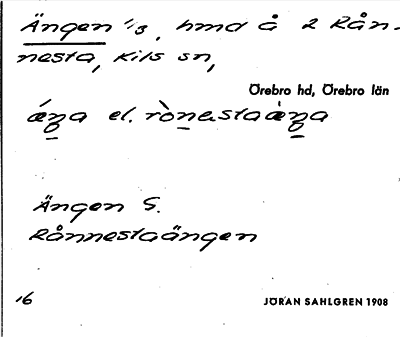 Ängen 1/3, hmd å 2 Rån-
nesta, Kils sn,
Örebro hd, Örebro län
ǽŋa el. rònastaæ̀ŋa
Ängen S.
Rånnestaängen
16
JÖRAN SAHLGREN 1908